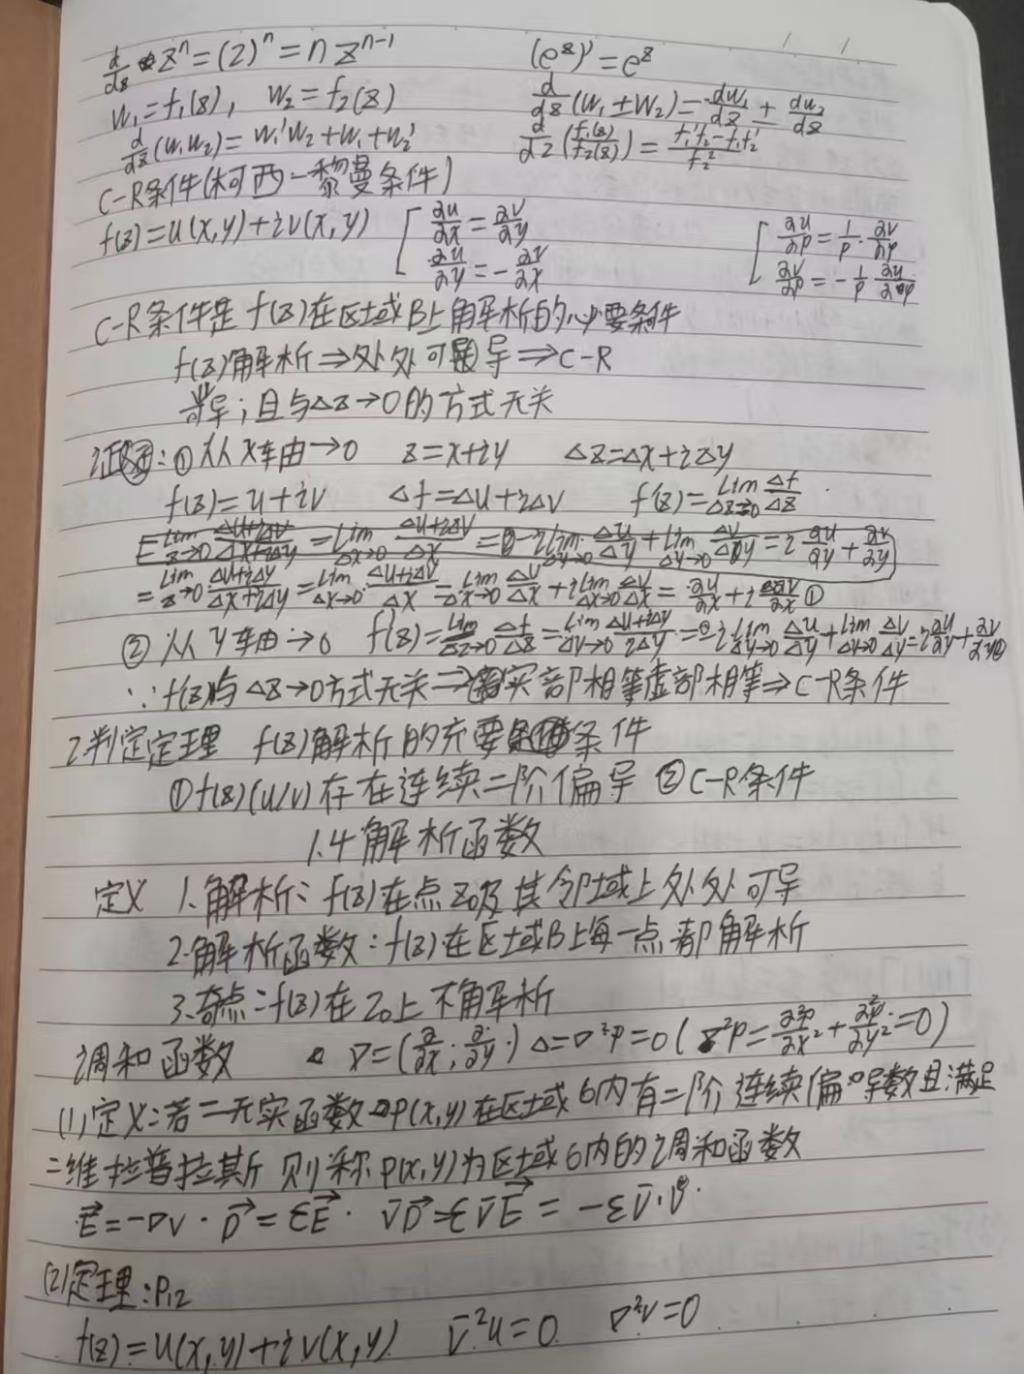 d/dz zⁿ = (z)ⁿ = n zⁿ⁻¹ (e^z)' = e^z
W₁ = f₁(z), W₂ = f₂(z) d/dz (W₁ ± W₂) = dW₁/dz + dW₂/dz
d/dz (W₁W₂) = W₁'W₂ + W₁ + W₂' d/dz (f₁(z)/f₂(z)) = (f₁'f₂ - f₁f₂')/f₂²
C-R条件(柯西-黎曼条件)
f(z) = u(x,y) + iv(x,y) [ ∂u/∂x = ∂v/∂y [ ∂u/∂ρ = 1/ρ · ∂v/∂φ
∂u/∂y = -∂v/∂x ∂v/∂ρ = -1/ρ ∂u/∂φ
C-R条件是 f(z)在区域B上解析的必要条件
f(z)解析⇒处处可导⇒C-R
导; 且与Δz→0的方式无关
证: ① 从x轴→0 z=x+iy Δz=Δx+iΔy
f(z)=u+iv Δf=Δu+iΔv f'(z)=Lim Δz→0 Δf/Δz
= Lim z→0 (Δu+iΔv)/(Δx+iΔy) = Lim Δx→0 (Δu+iΔv)/Δx = Lim Δx→0 Δu/Δx + i Lim Δx→0 Δv/Δx = ∂u/∂x + i ∂v/∂x ①
② 从y轴→0 f'(z)=Lim Δz→0 Δf/Δz = Lim Δy→0 (Δu+iΔv)/(iΔy) = -i Lim Δy→0 Δu/Δy + Lim Δy→0 Δv/Δy = i ∂u/∂y + ∂v/∂y ②
∵ f(z)与Δz→0方式无关⇒实部相等虚部相等⇒C-R条件
2.判定定理 f(z)解析的充要条件
① f(z)(u/v)存在连续二阶偏导 ② C-R条件
1.4 解析函数
定义 1.解析: f(z)在点z₀及其邻域上处处可导
2.解析函数: f(z)在区域B上每一点都解析
3.奇点: f(z)在z₀上不解析
调和函数 ∇=(∂/∂x; ∂/∂y) Δ=∇²P=0 (∇²P=∂²P/∂x²+∂²P/∂y²=0)
(1)定义:若二元实函数P(x,y)在区域6内有二阶连续偏导数且满足
二维拉普拉斯 则称P(x,y)为区域6内的调和函数
E⃗=-∇V · D⃗=εE⃗ · ∇D⃗=ε∇E⃗=-ε∇·∇
(2)定理:P₁₂
f(z)=u(x,y)+iv(x,y) ∇²u=0 ∇²v=0